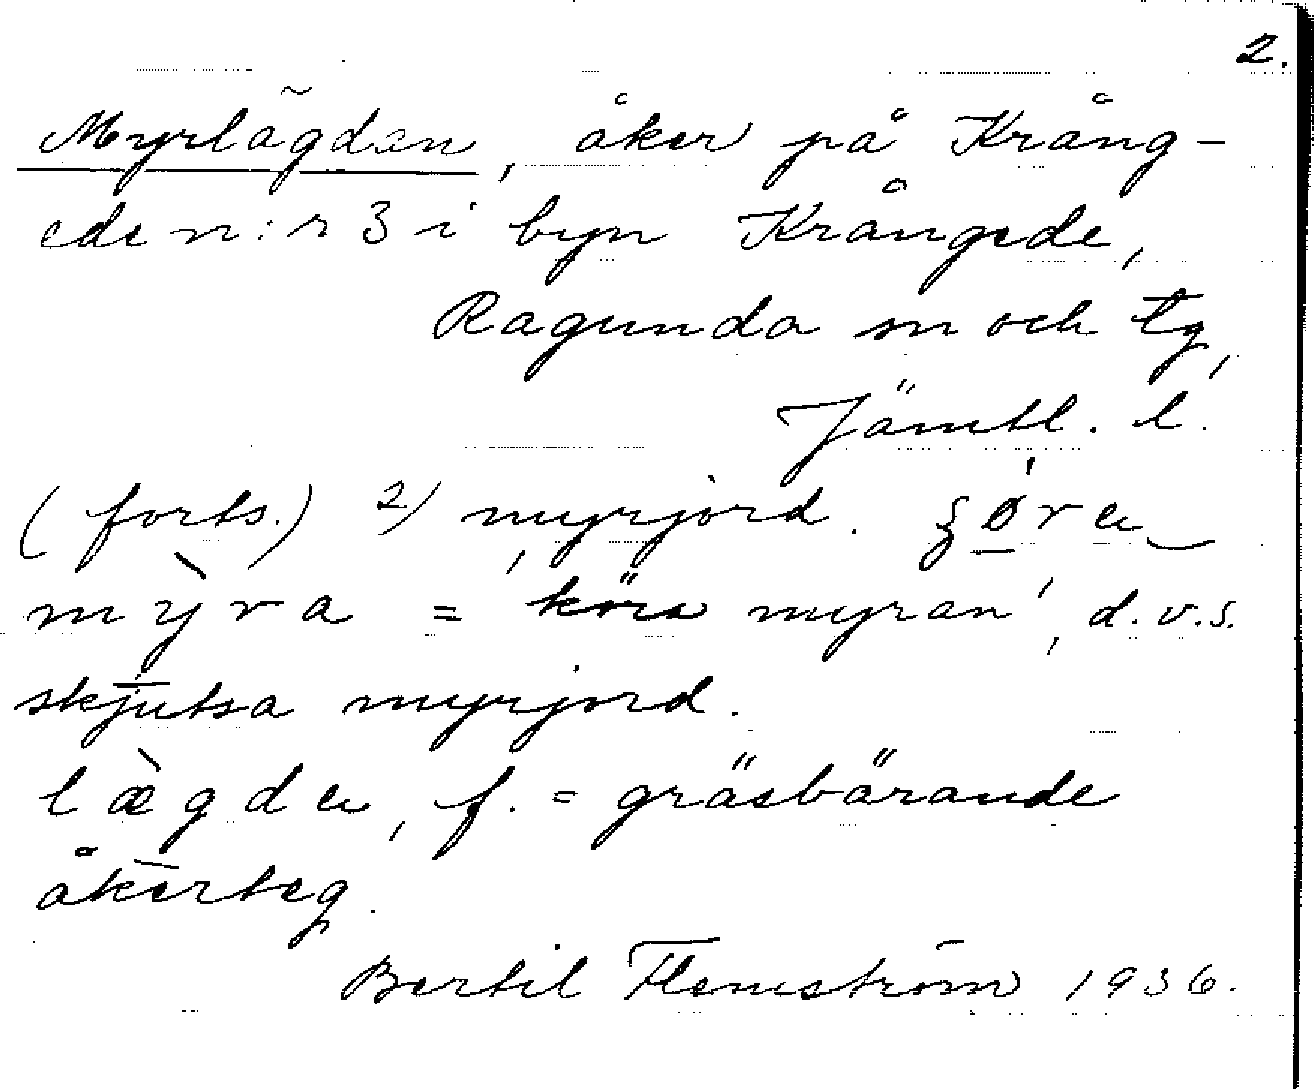 2.
Myrlägdan, åker på Kräng-
ede n:r 3 i byn Krångede,
Ragunda sn och tg,
Jämtl. l.
(forts.) 2) myrjord.
mỳra = 'köra myran', d.v.s.
skjutsa myrjord.
læ̀gda, f. = gräsbärande
åkerteg.
Bertil Flemström 1936.